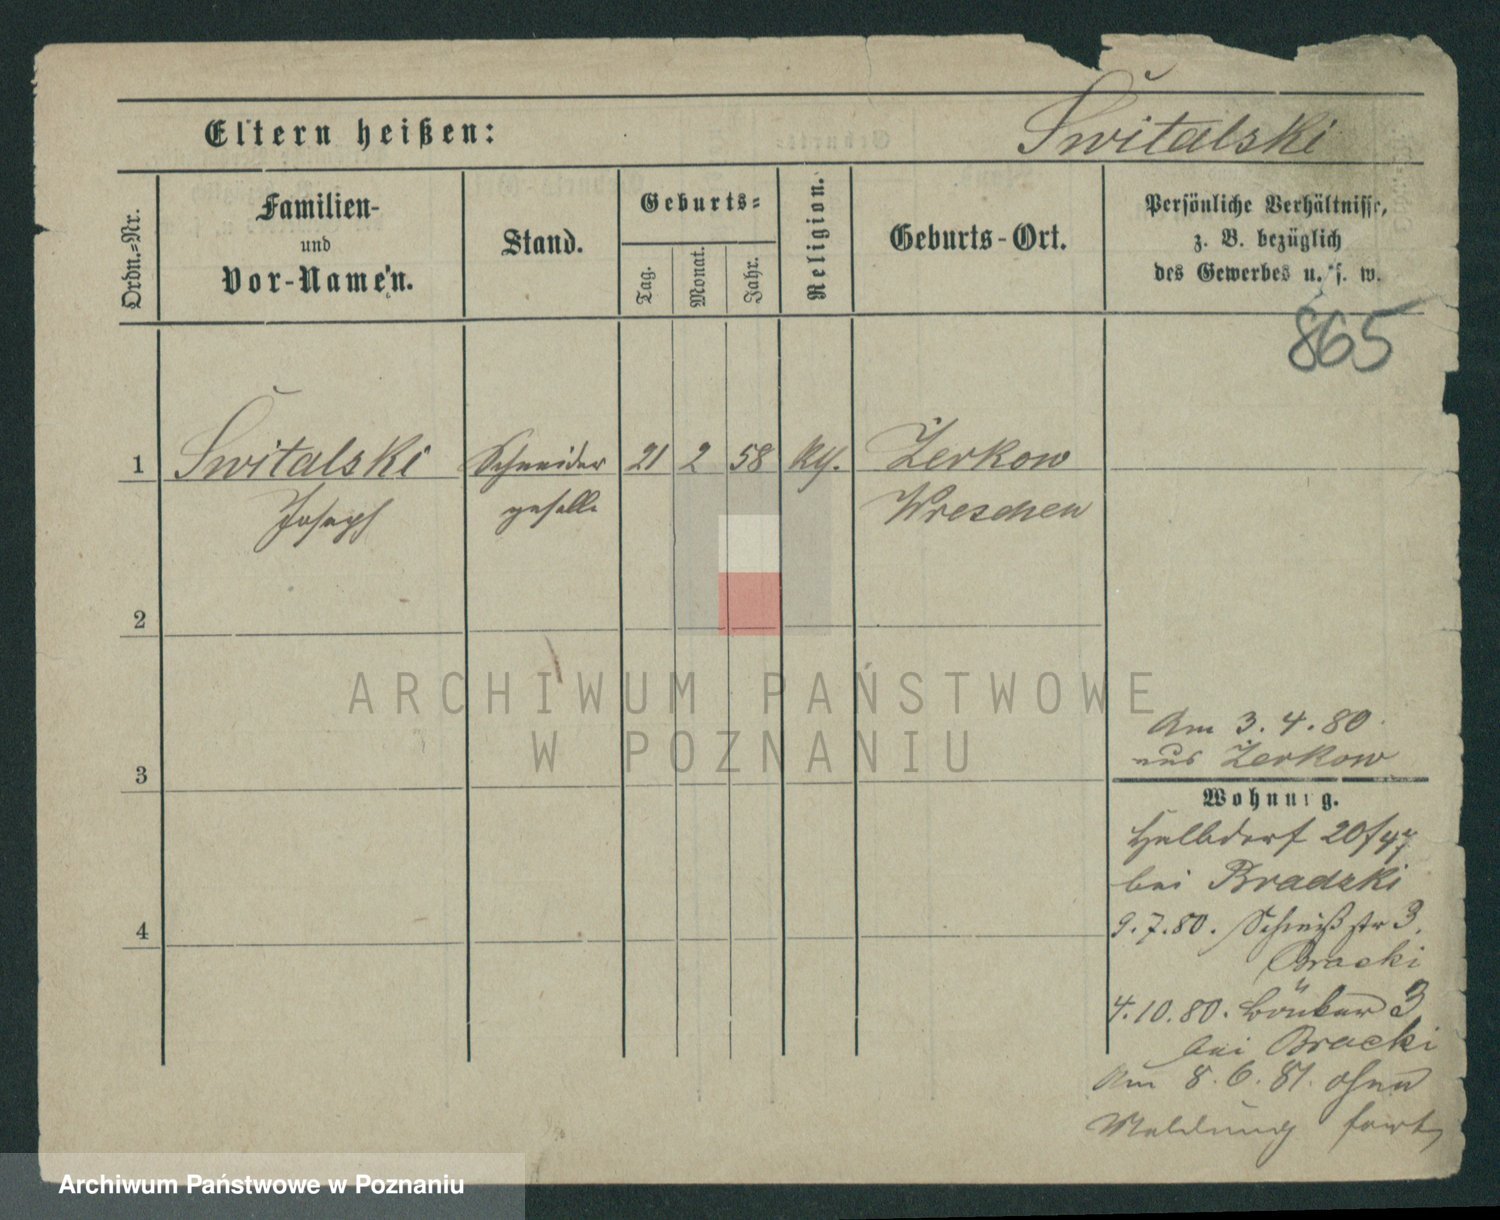 Eltern heißen:
Świtalski
Ordn.-Nr.
Familien-
und
Vor-Namen.
Stand.
Geburts-
Tag.
Monat.
Jahr.
Religion.
Geburts-Ort.
Persönliche Verhältnisse,
z. B. bezüglich
des Gewerbes u. s. w.
865
1 Świtalski Schneider 21 2 58 Zerkow
Joseph geselle Wreschen
2
ARCHIWUM PAŃSTWOWE
W POZNANIU
Am 3.4.80
aus Zerkow
3
Wohnung.
Halbdorf 20/47
bei Bradzki
4
9.7.80. str 3.
Bracki
4.10.80. 3
bei Bracki
Am 8.6.81. ohne
Meldung fort
Archiwum Państwowe w Poznaniu